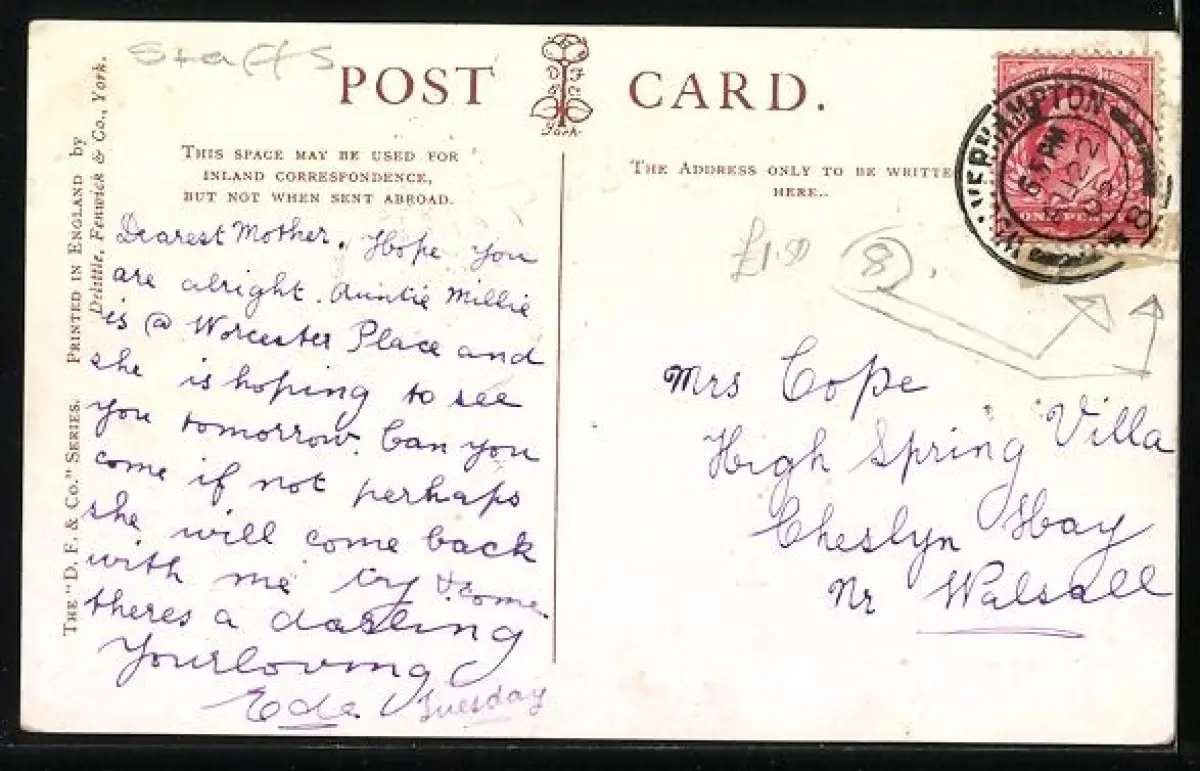 Staffs
POST CARD.
D F
& C
York.
THIS SPACE MAY BE USED FOR
INLAND CORRESPONDENCE,
BUT NOT WHEN SENT ABROAD.
THE ADDRESS ONLY TO BE WRITTE
HERE..
PRINTED IN ENGLAND by
Delittle, Fenwick & Co., York.
THE "D. F. & Co." SERIES.
Dearest Mother. Hope you
are alright. Auntie Millie
is @ Worcester Place and
she is hoping to see
you tomorrow. Can you
come if not perhaps
she will come back
with me try & come
theres a darling
Your loving
Eda Tuesday
VERHAMPTON
6 PM
22
8
ONE PENNY
£1.50
8
Mrs Cope
High Spring Villa
Cheslyn Hay
Nr Walsall